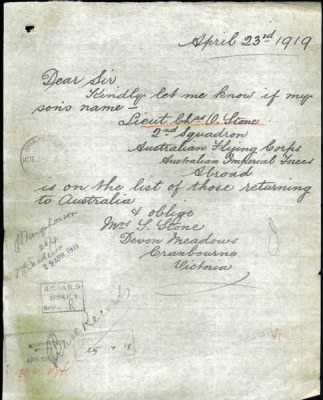 April 23rd 1919
Dear Sir
Kindly let me know if my
son's name –
Lieut Chas O. Stone
2nd Squadron
Australian Flying Corps
Australian Imperial Forces
Abroad
is on the list of those returning
to Australia
& oblige
Mrs S. Stone
Devon Meadows
Cranbourne
Victoria
Records
25 4 19